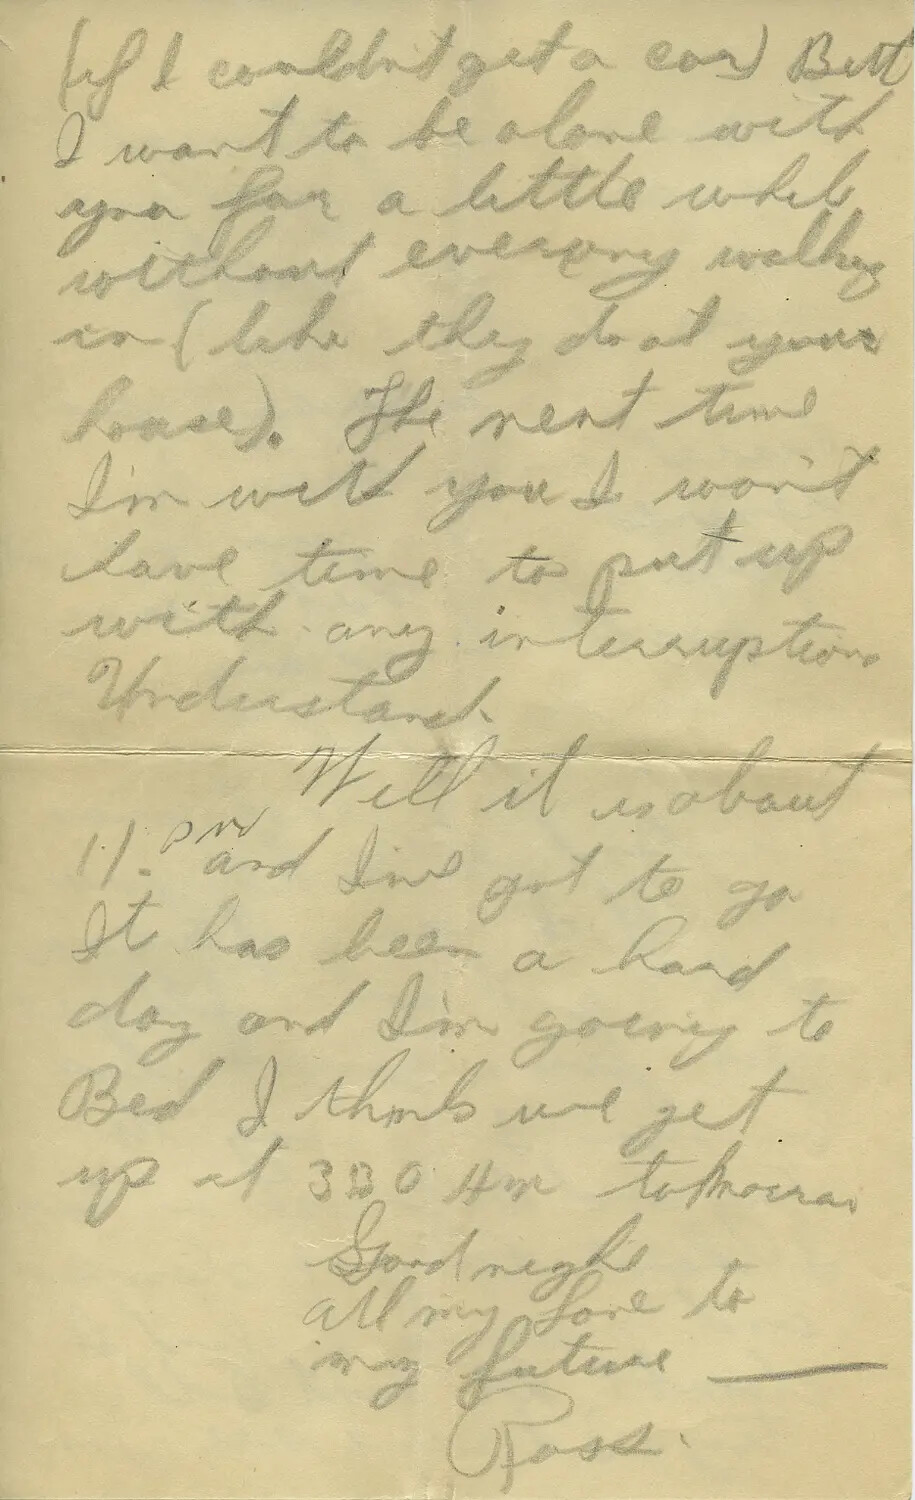 (if I couldn't get a car) But
I want to be alone with
you for a little while
without everyone walking
in (like they do at your
house). The next time
I'm with you I won't
have time to put up
with any interruptions
Understand.
Well it is about
11. PM and I've got to go
It has been a hard
day and I'm going to
Bed I think we get
up at 330 AM tomorrow
Goodnight
All my Love to
my future ——
Ross.